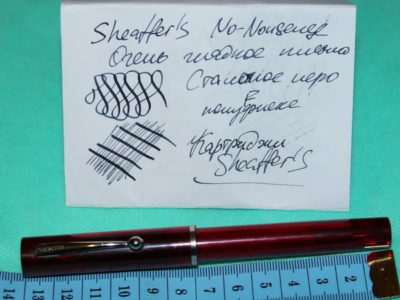 Sheaffer's No-Nonsense
Очень гладкое письмо
Стальное перо
Картриджи
Sheaffer's
14 13 12 11 10 9 8 7 6 5 4 3 2